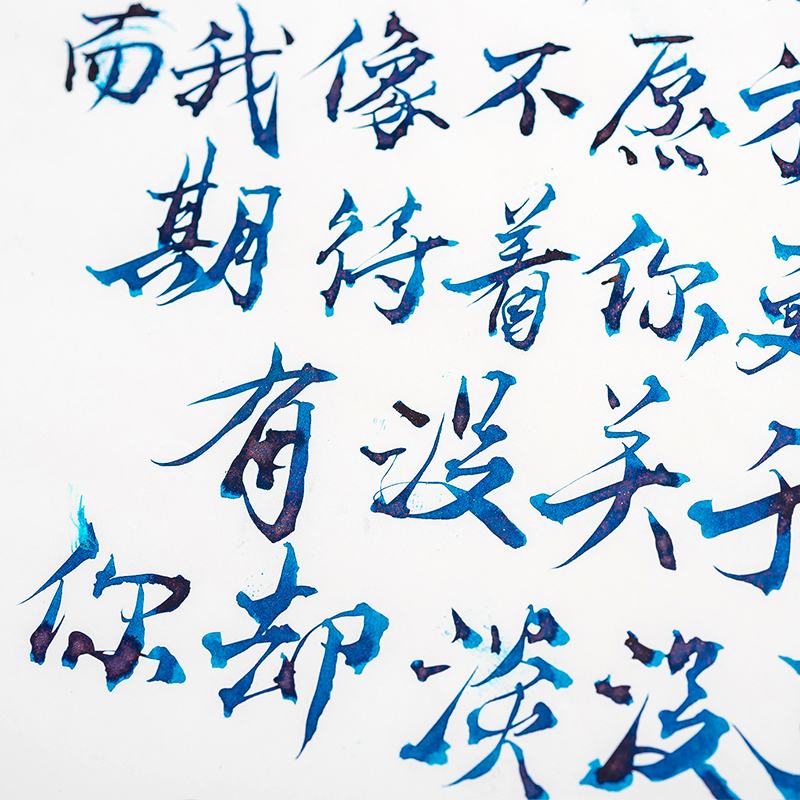 而我像不愿
期待着你更
有没关于
你却淡没